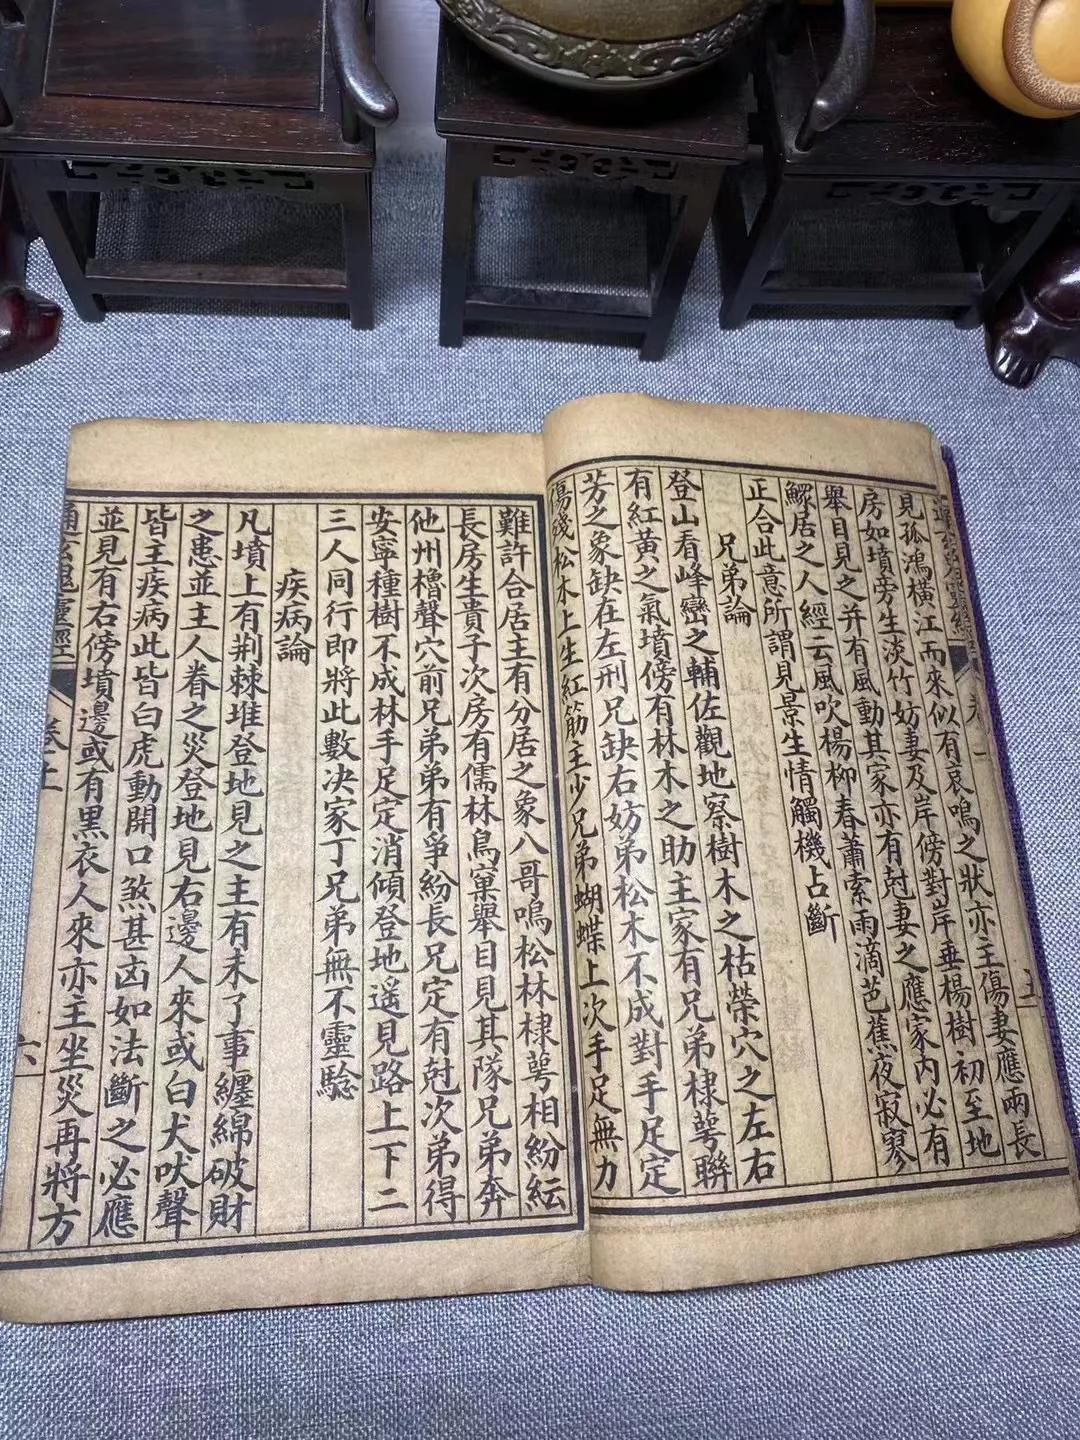 見孤鴻橫江而來似有哀鳴之狀亦主傷妻應兩長
房如墳旁生淡竹妨妻及岸傍對岸垂楊樹初至地
舉目見之并有風動其家亦有尅妻之應家內必有
鰥居之人經云風吹楊柳春蕭索雨滴芭蕉夜寂寥
正合此意所謂見景生情觸機占斷
兄弟論
登山看峰巒之輔佐觀地察樹木之枯榮穴之左右
有紅黃之氣墳傍有林木之助主家有兄弟棣萼聯
芳之象缺在左刑兄缺右妨弟松木不成對手足定
傷殘松木上生紅筋主少兄弟蝴蝶上次手足無力
難許合居主有分居之象八哥鳴松林棣萼相紛紜
長房生貴子次房有儒林鳥窠舉目見其隊兄弟奔
他州櫓聲穴前兄弟弟有爭紛長兄定有尅次弟得
安寧種樹不成林手足定消傾登地遙見路上下二
三人同行即將此數决家丁兄弟無不靈驗
疾病論
凡墳上有荆棘堆登地見之主有未了事纏綿破財
之患並主人眷之災登地見右邊人來或白犬吠聲
皆主疾病此皆白虎動開口煞甚凶如法斷之必應
並見有右傍墳邊或有黑衣人來亦主坐災再將方
通玄鬼靈經 卷上 六